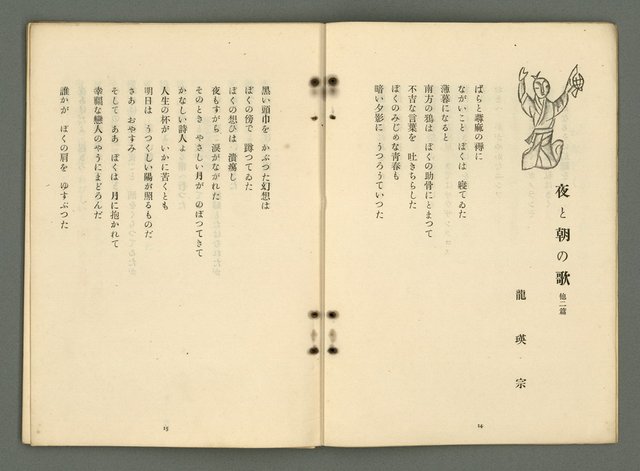 夜と朝の歌 他二篇
龍瑛宗
ばらと蕁麻の褥に
ながいこと ぼくは 寢てゐた
薄暮になると
南方の鴉は ぼくの肋骨にとまつて
不吉な言葉を 吐きちらした
ぼくのみじめな青春も
暗い夕影に うつろうていつた
14
黑い頭巾を かぶつた幻想は
ぼくの傍で 蹲つてゐた
ぼくの想ひは 潰瘍し
夜もすがら 淚がながれた
そのとき やさしい月が のぼつてきて
かなしい詩人よ
人生の杯が いかに苦くとも
明日は うつくしい陽が照るものだ
さあ おやすみ
そして ああ ぼくは 月に抱かれて
幸福な戀人のやうにまどろんだ
誰かが ぼくの肩を ゆすぶつた
15